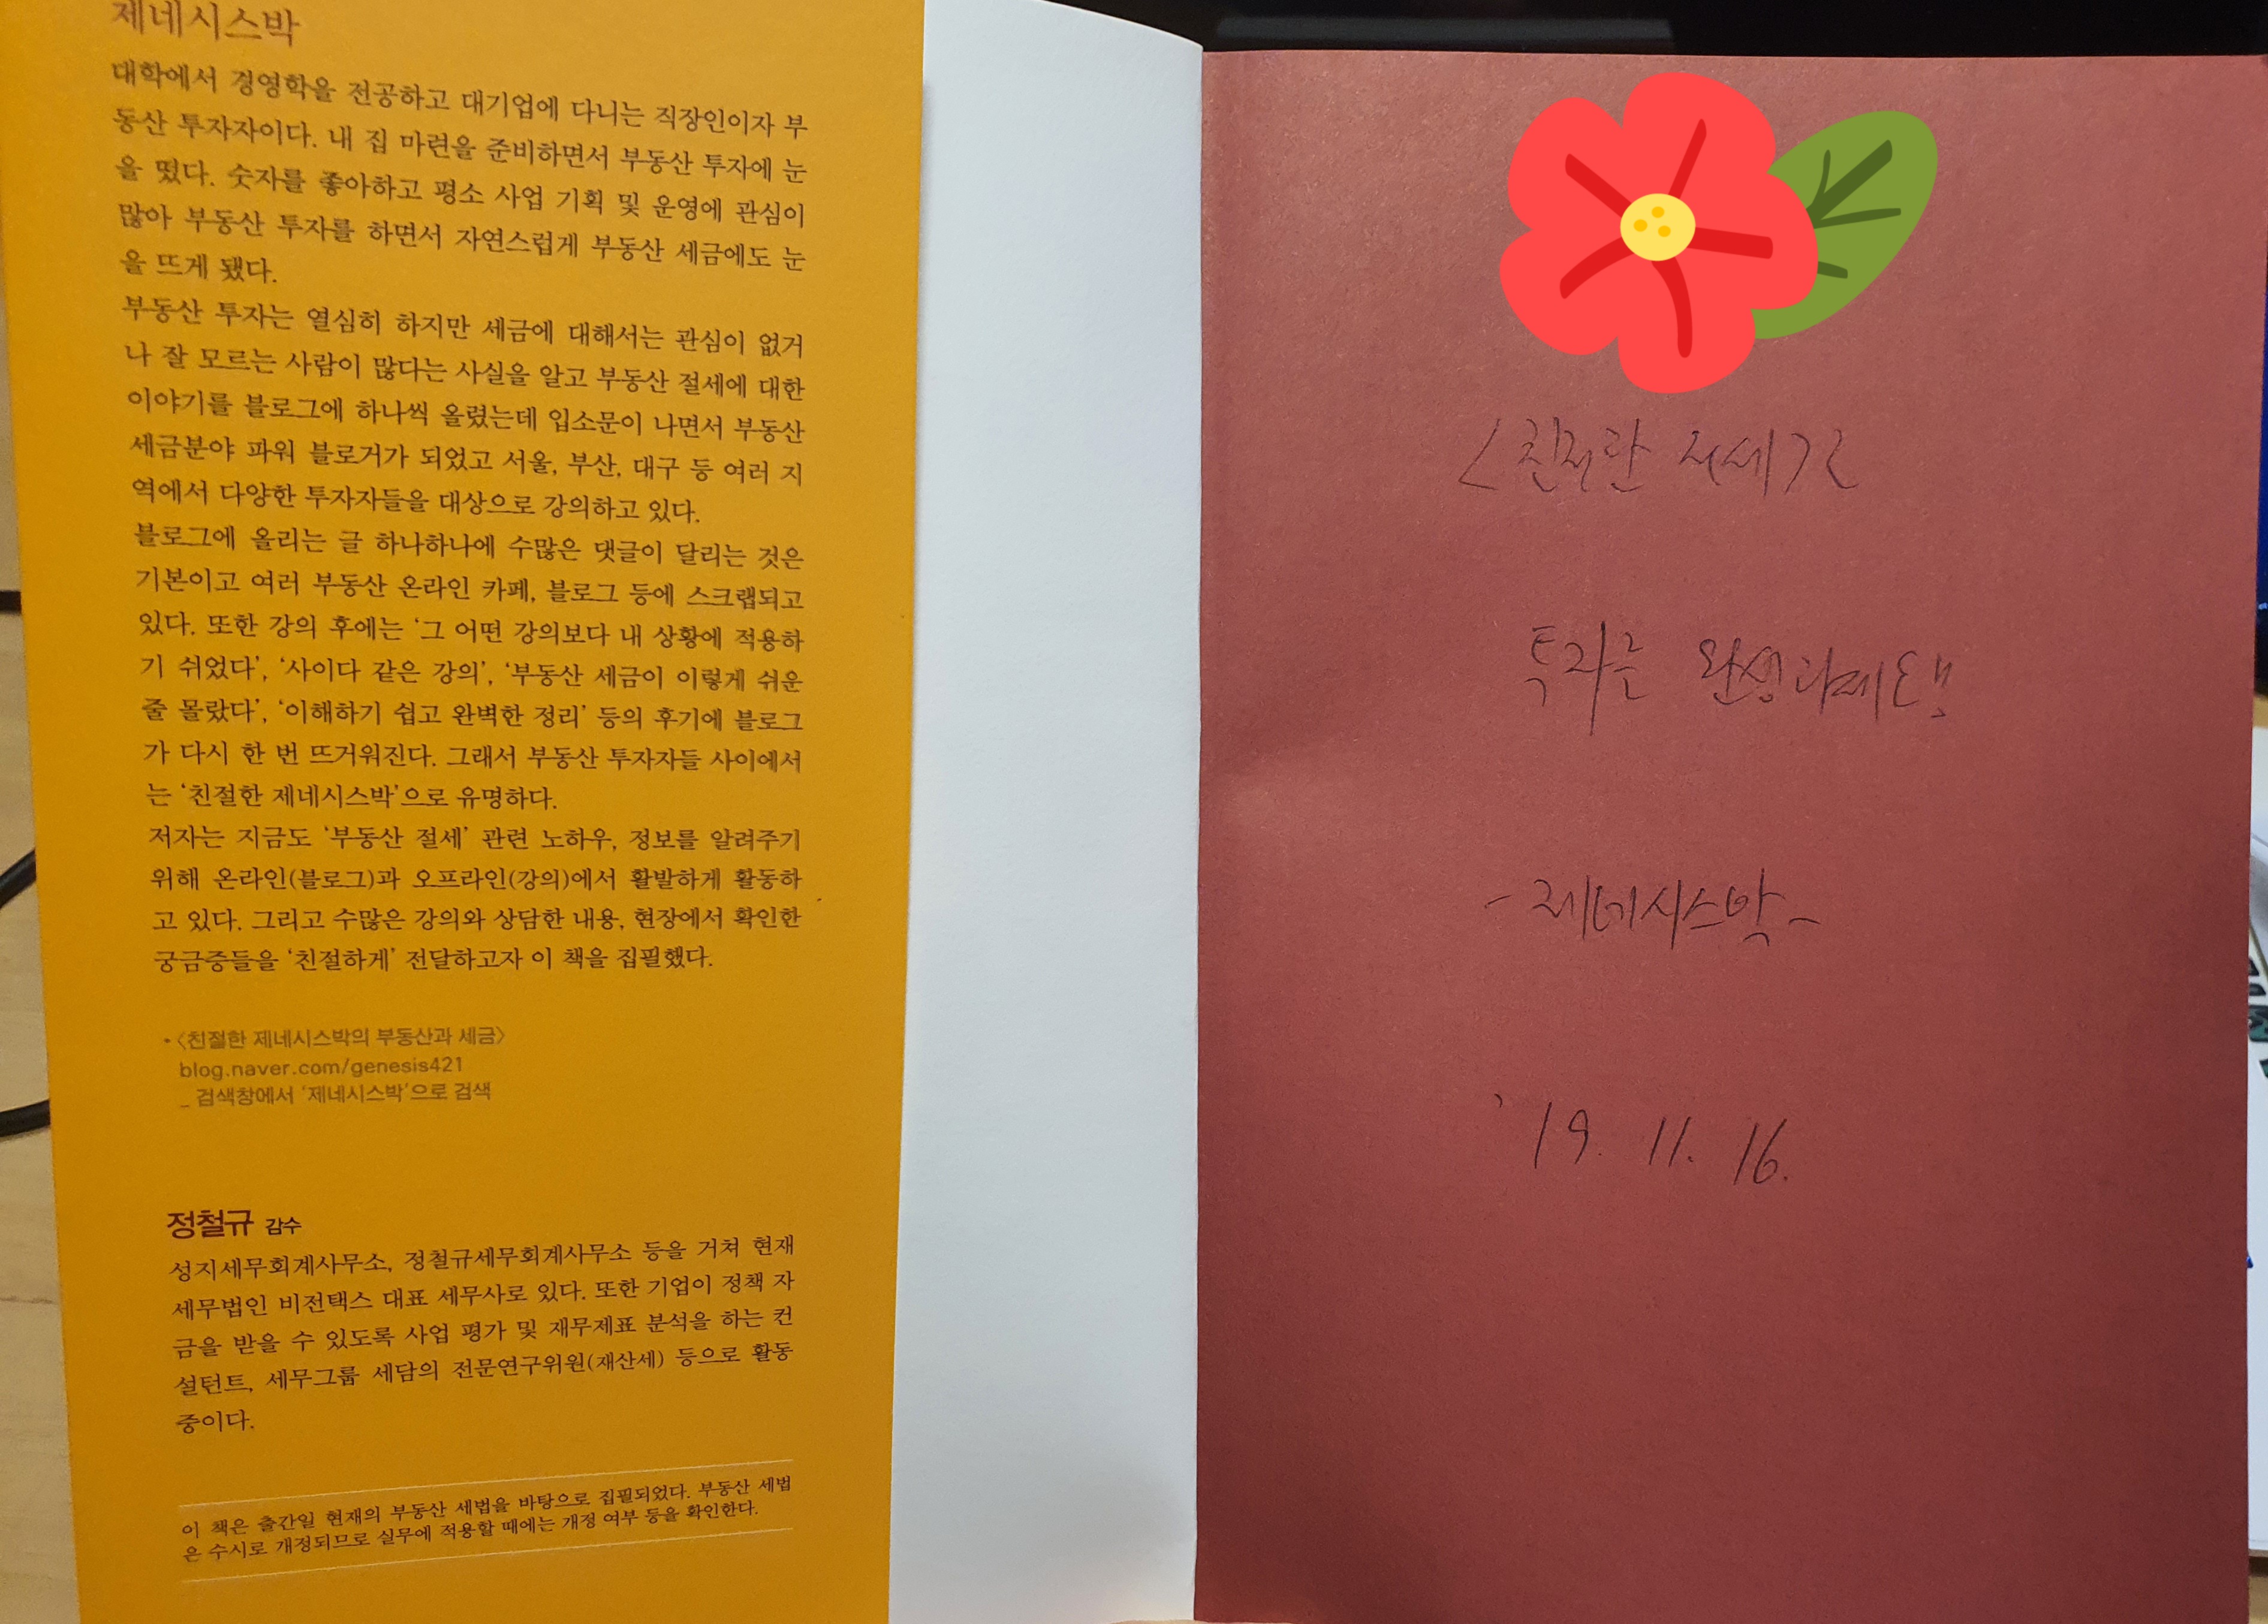 제네시스박
대학에서 경영학을 전공하고 대기업에 다니는 직장인이자 부
동산 투자자이다. 내 집 마련을 준비하면서 부동산 투자에 눈
을 떴다. 숫자를 좋아하고 평소 사업 기획 및 운영에 관심이
많아 부동산 투자를 하면서 자연스럽게 부동산 세금에도 눈
을 뜨게 됐다.
부동산 투자는 열심히 하지만 세금에 대해서는 관심이 없거
나 잘 모르는 사람이 많다는 사실을 알고 부동산 절세에 대한
이야기를 블로그에 하나씩 올렸는데 입소문이 나면서 부동산
세금분야 파워 블로거가 되었고 서울, 부산, 대구 등 여러 지
역에서 다양한 투자자들을 대상으로 강의하고 있다.
블로그에 올리는 글 하나하나에 수많은 댓글이 달리는 것은
기본이고 여러 부동산 온라인 카페, 블로그 등에 스크랩되고
있다. 또한 강의 후에는 ‘그 어떤 강의보다 내 상황에 적용하
기 쉬었다’, ‘사이다 같은 강의’, ‘부동산 세금이 이렇게 쉬운
줄 몰랐다’, ‘이해하기 쉽고 완벽한 정리’ 등의 후기에 블로그
가 다시 한 번 뜨거워진다. 그래서 부동산 투자자들 사이에서
는 ‘친절한 제네시스박’으로 유명하다.
저자는 지금도 ‘부동산 절세’ 관련 노하우, 정보를 알려주기
위해 온라인(블로그)과 오프라인(강의)에서 활발하게 활동하
고 있다. 그리고 수많은 강의와 상담한 내용, 현장에서 확인한
궁금증들을 ‘친절하게’ 전달하고자 이 책을 집필했다.
• 〈친절한 제네시스박의 부동산과 세금〉
blog.naver.com/genesis421
_ 검색창에서 ‘제네시스박’으로 검색
정철규 감수
성지세무회계사무소, 정철규세무회계사무소 등을 거쳐 현재
세무법인 비전택스 대표 세무사로 있다. 또한 기업이 정책 자
금을 받을 수 있도록 사업 평가 및 재무제표 분석을 하는 컨
설턴트, 세무그룹 세담의 전문연구위원(재산세) 등으로 활동
중이다.
이 책은 출간일 현재의 부동산 세법을 바탕으로 집필되었다. 부동산 세법
은 수시로 개정되므로 실무에 적용할 때에는 개정 여부 등을 확인한다.
투자는
- 제네시스박 -
'19. 11. 16.